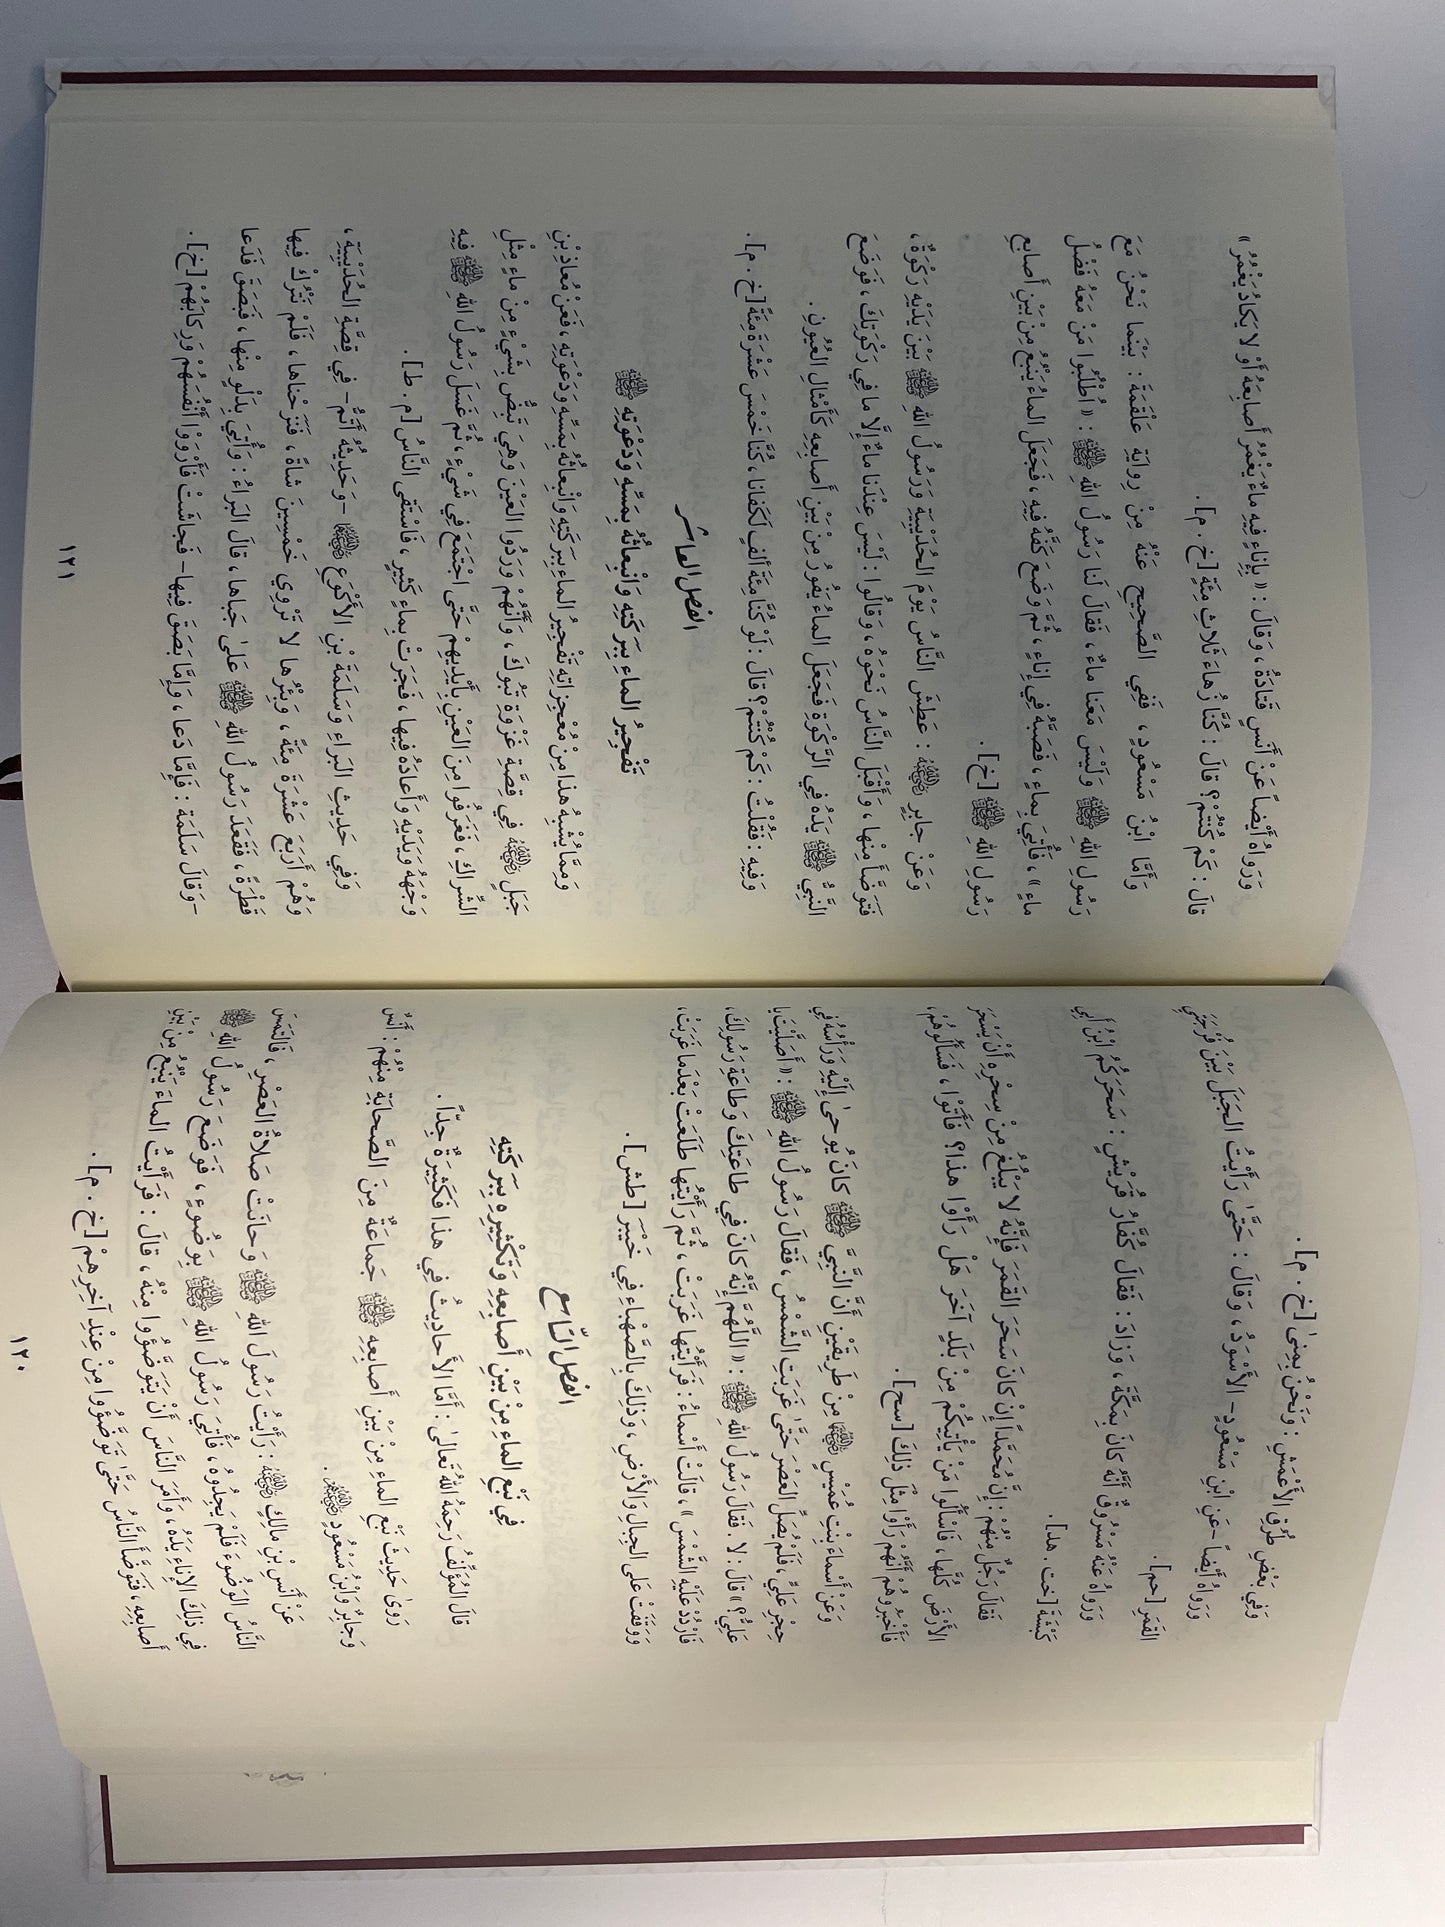 وَفِي بَعْضِ طُرُقِ الأَعْمَشِ : وَنَحْنُ بِمِنىٰ [خ . م] .
وَرَوَاهُ أَيْضاً -عَنِ ابْنِ مَسْعُودٍ- الأَسْوَدُ ، وَقالَ : حَتَّىٰ رَأَيْتُ الجَبَلَ بَيْنَ فُرْجَتَيِ
القَمَرِ [حم] .
وَرَوَاهُ عَنْهُ مَسْرُوقٌ أَنَّهُ كانَ بِمَكَّةَ ، وَزادَ : فَقالَ كُفَّارُ قُرَيْشٍ : سَحَرَكُمُ ابْنُ أَبِي
كَبْشَةَ [خت . هد] .
فَقالَ رَجُلٌ مِنْهُمْ : إِنَّ مُحَمَّداً إِنْ كانَ سَحَرَ القَمَرَ فَإِنَّهُ لا يَبْلُغُ مِنْ سِحْرِهِ أَنْ يَسْحَرَ
الأَرْضَ كُلَّها ، فَاسْأَلُوا مَنْ يَأْتِيكُمْ مِنْ بَلَدٍ آخَرَ هَلْ رَأَوْا هذا؟ فَأَتَوْا ، فَسَأَلُوهُمْ ،
فَأَخْبَرُوهُمْ أَنَّهُمْ رَأَوْا مِثْلَ ذلِكَ [سح] .
وَعَنْ أَسْماءَ بِنْتِ عُمَيْسٍ ﵂ مِنْ طَرِيقَيْنِ أَنَّ النَّبِيَّ ﷺ كانَ يُوحىٰ إِلَيْهِ وَرَأْسُهُ فِي
حِجْرِ عَلِيٍّ ، فَلَمْ يُصَلِّ العَصْرَ حَتَّىٰ غَرَبَتِ الشَّمْسُ ، فَقالَ رَسُولُ اللهِ ﷺ : « أَصَلَّيْتَ يا
عَلِيُّ؟ » قالَ : لا . فَقالَ رَسُولُ اللهِ ﷺ : « اللَّهُمَّ إِنَّهُ كانَ فِي طاعَتِكَ وَطاعَةِ رَسُولِكَ ،
فَارْدُدْ عَلَيْهِ الشَّمْسَ » ، قالَتْ أَسْماءُ : فَرَأَيْتُها غَرَبَتْ ، ثُمَّ رَأَيْتُها طَلَعَتْ بَعْدَما غَرَبَتْ ،
وَوَقَفَتْ عَلَى الجِبالِ وَالأَرْضِ ، وَذلِكَ بِالصَّهْباءِ فِي خَيْبَرَ [طش] .
الفصل التاسع
فِي نَبْعِ الماءِ مِنْ بَيْنِ أَصابِعِهِ وَتَكْثِيرِهِ بِبَرَكَتِهِ
قالَ المُؤَلِّفُ رَحِمَهُ اللهُ تَعالىٰ : أَمَّا الأَحادِيثُ فِي هذا فَكَثِيرَةٌ جِدّاً .
رَوىٰ حَدِيثَ نَبْعِ الماءِ مِنْ بَيْنِ أَصابِعِهِ ﷺ جَماعَةٌ مِنَ الصَّحابَةِ مِنْهُمْ : أَنَسٌ
وَجابِرٌ وَابْنُ مَسْعُودٍ ﵃ .
عَنْ أَنَسِ بْنِ مالِكٍ ﵁ : رَأَيْتُ رَسُولَ اللهِ ﷺ وَحانَتْ صَلاةُ العَصْرِ ، فَالْتَمَسَ
النَّاسُ الوَضُوءَ فَلَمْ يَجِدُوهُ ، فَأُتِيَ رَسُولُ اللهِ ﷺ بِوَضُوءٍ ، فَوَضَعَ رَسُولُ اللهِ ﷺ
فِي ذلِكَ الإِناءِ يَدَهُ ، وَأَمَرَ النَّاسَ أَنْ يَتَوَضَّؤُوا مِنْهُ ، قالَ : فَرَأَيْتُ الماءَ يَنْبُعُ مِنْ بَيْنِ
أَصابِعِهِ ، فَتَوَضَّأَ النَّاسُ حَتَّىٰ تَوَضَّؤُوا مِنْ عِنْدِ آخِرِهِمْ [خ . م] .
١٢٠
وَرَوَاهُ أَيْضاً عَنْ أَنَسٍ قَتَادَةُ ، وَقالَ : « بِإِناءٍ فِيهِ ماءٌ يَغْمُرُ أَصابِعَهُ أَوْ لا يَكادُ يَغْمُرُ »
قالَ : كَمْ كُنْتُمْ؟ قالَ : كُنَّا زُهاءَ ثَلاثِ مِئَةٍ [خ . م] .
وَأَمَّا ابْنُ مَسْعُودٍ ، فَفِي الصَّحِيحِ عَنْهُ مِنْ رِوايَةِ عَلْقَمَةَ : بَيْنَما نَحْنُ مَعَ
رَسُولِ اللهِ ﷺ وَلَيْسَ مَعَنا ماءٌ ، فَقالَ لَنا رَسُولُ اللهِ ﷺ : « اُطْلُبُوا مَنْ مَعَهُ فَضْلُ
ماءٍ » ، فَأُتِيَ بِماءٍ ، فَصَبَّهُ فِي إِناءٍ ، ثُمَّ وَضَعَ كَفَّهُ فِيهِ ، فَجَعَلَ الماءُ يَنْبُعُ مِنْ بَيْنِ أَصابِعِ
رَسُولِ اللهِ ﷺ [خ] .
وَعَنْ جابِرٍ ﵁ : عَطِشَ النَّاسُ يَوْمَ الحُدَيْبِيَةِ وَرَسُولُ اللهِ ﷺ بَيْنَ يَدَيْهِ رَكْوَةٌ ،
فَتَوَضَّأَ مِنْها ، وَأَقْبَلَ النَّاسُ نَحْوَهُ ، وَقالُوا : لَيْسَ عِنْدَنا ماءٌ إِلَّا ما فِي رَكْوَتِكَ ، فَوَضَعَ
النَّبِيُّ ﷺ يَدَهُ فِي الرَّكْوَةِ فَجَعَلَ الماءُ يَفُورُ مِنْ بَيْنِ أَصابِعِهِ كَأَمْثالِ العُيُونِ .
وَفِيهِ : فَقُلْتُ : كَمْ كُنْتُمْ؟ قالَ : لَوْ كُنَّا مِئَةَ أَلْفٍ لَكَفانا ، كُنَّا خَمْسَ عَشْرَةَ مِئَةً [خ . م] .
الفصل العاشر
تَفْجِيرُ الماءِ بِبَرَكَتِهِ وَانْبِعاثُهُ بِمَسِّهِ وَدَعْوَتِهِ ﷺ
وَمِمَّا يُشْبِهُ هذا مِنْ مُعْجِزاتِهِ تَفْجِيرُ الماءِ بِبَرَكَتِهِ وَانْبِعاثُهُ بِمَسِّهِ وَدَعْوَتِهِ ، فَعَنْ مُعاذِ بْنِ
جَبَلٍ ﵁ فِي قِصَّةِ غَزْوَةِ تَبُوكَ ، وَأَنَّهُمْ وَرَدُوا العَيْنَ وَهِيَ تَبِضُّ بِشَيْءٍ مِنْ ماءٍ مِثْلِ
الشِّراكِ ، فَغَرَفُوا مِنَ العَيْنِ بِأَيْدِيهِمْ حَتَّى اجْتَمَعَ فِي شَيْءٍ ، ثُمَّ غَسَلَ رَسُولُ اللهِ ﷺ فِيهِ
وَجْهَهُ وَيَدَيْهِ وَأَعادَهُ فِيها ، فَجَرَتْ بِماءٍ كَثِيرٍ ، فَاسْتَقَى النَّاسُ [م . ط] .
وَفِي حَدِيثِ البَراءِ وَسَلَمَةَ بْنِ الأَكْوَعِ ﵄ -وَحَدِيثُهُ أَتَمُّ- فِي قِصَّةِ الحُدَيْبِيَةِ ،
وَهُمْ أَرْبَعَ عَشْرَةَ مِئَةً ، وَبِئْرُها لا تُرْوِي خَمْسِينَ شاةً ، فَنَزَحْناها ، فَلَمْ نَتْرُكْ فِيها
قَطْرَةً ، فَقَعَدَ رَسُولُ اللهِ ﷺ عَلىٰ جَباها ، قالَ البَراءُ : وَأُتِيَ بِدَلْوٍ مِنْها ، فَبَصَقَ فَدَعا
-وَقالَ سَلَمَة : فَإِمَّا دَعا ، وَإِمَّا بَصَقَ فِيها- فَجاشَتْ فَأَرْوَوْا أَنْفُسَهُمْ وَرِكابَهُمْ [خ] .
١٢١